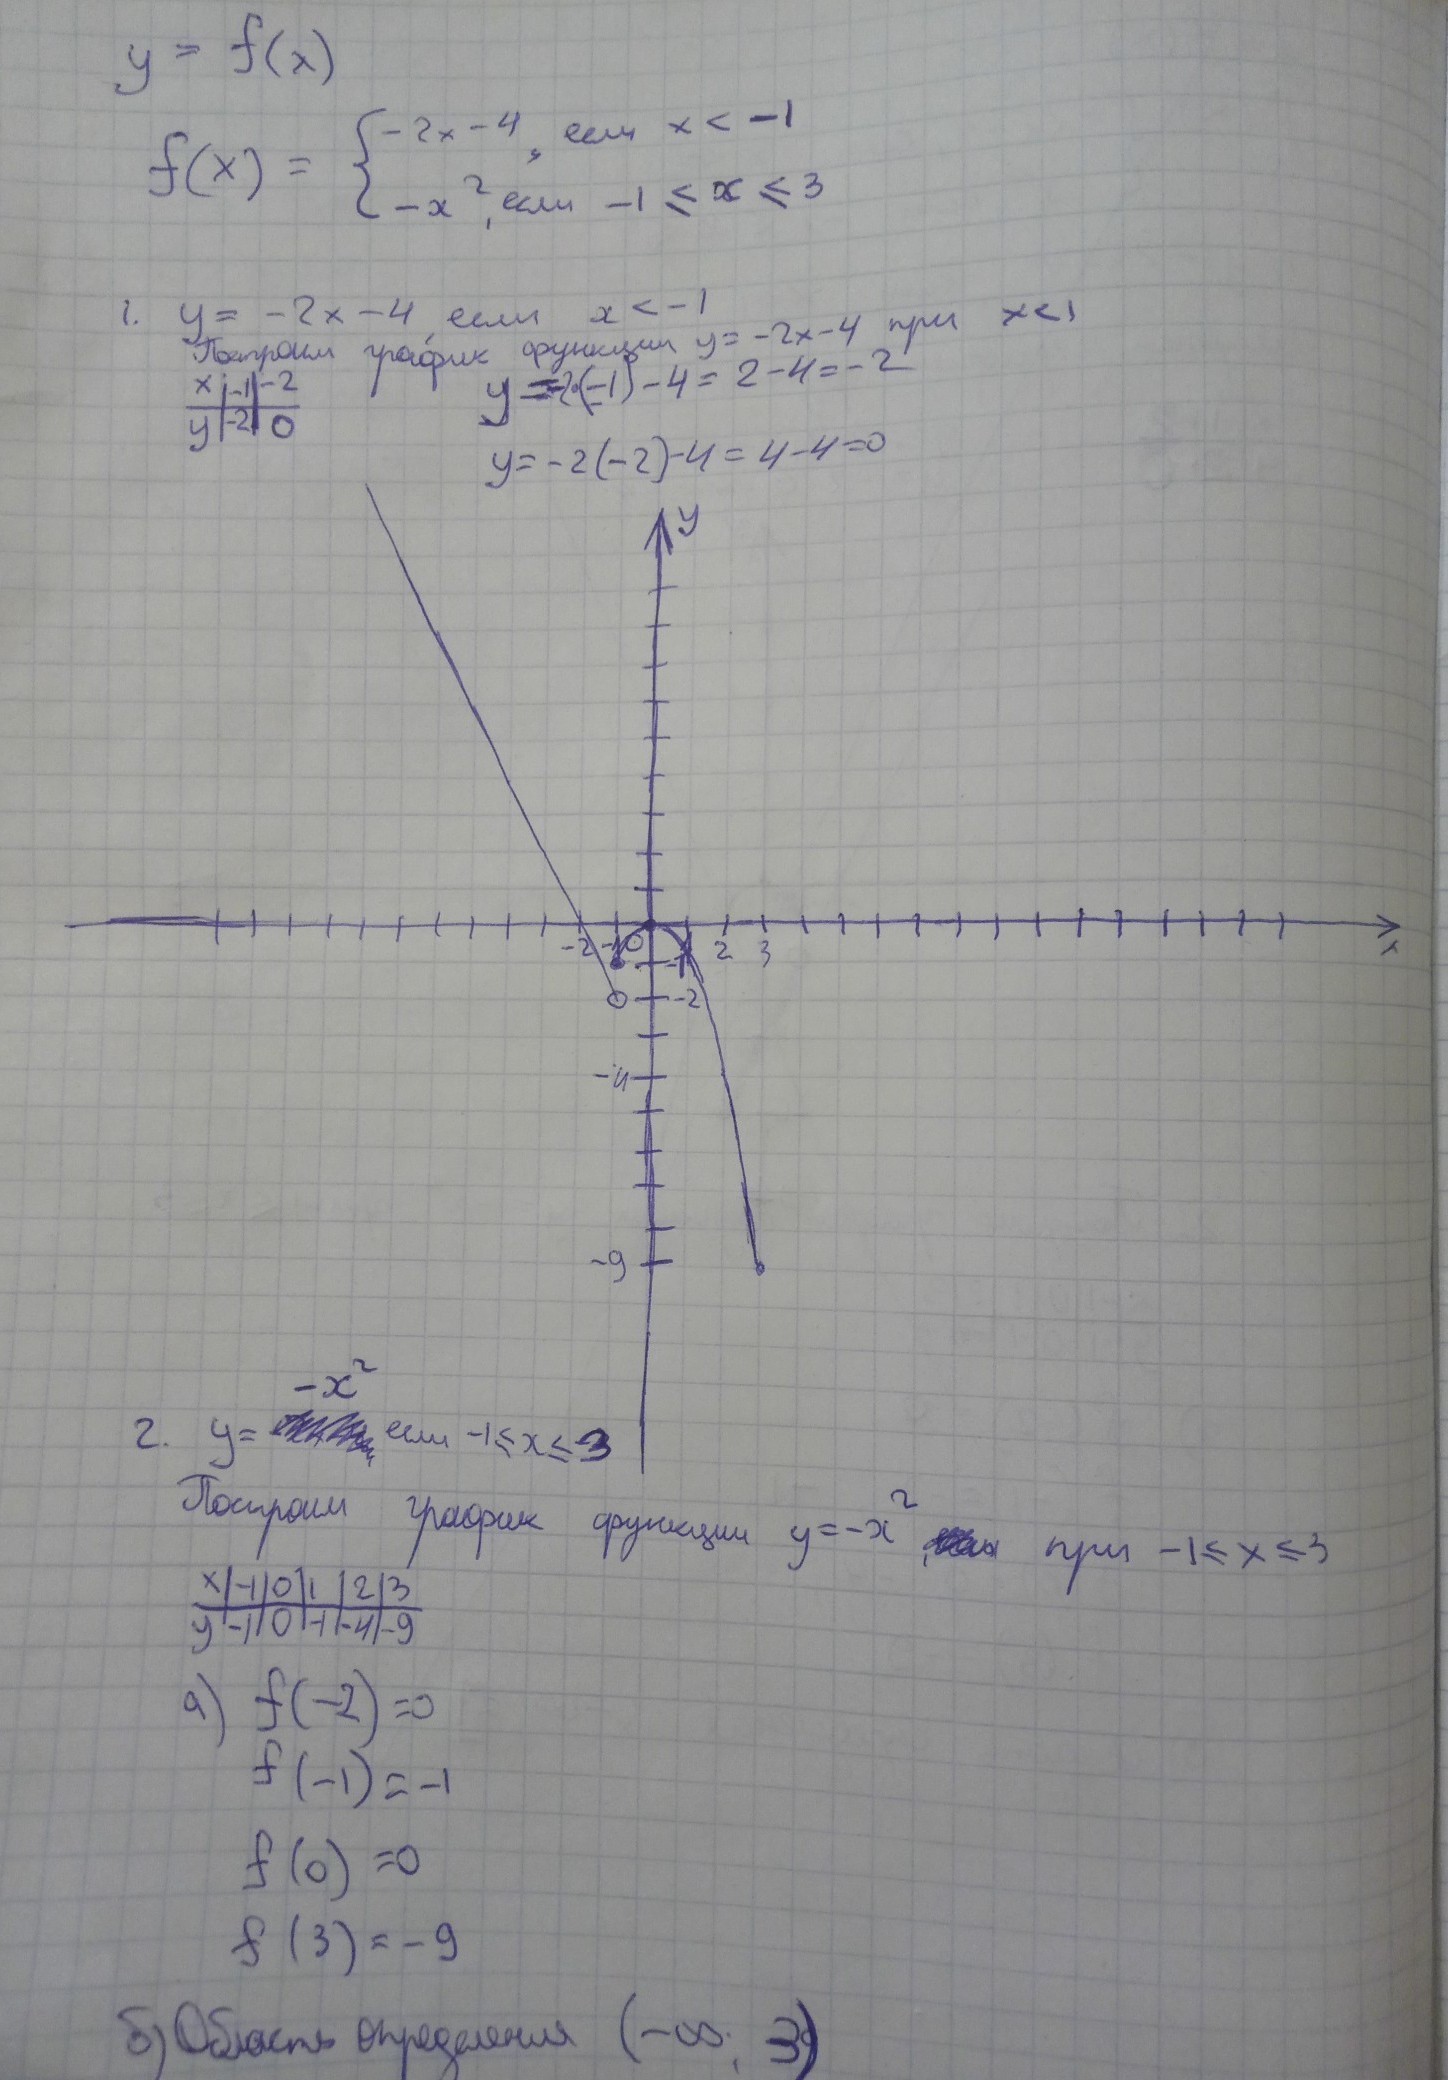 y = f(x)
f(x) = { -2x-4, если x < -1
-x², если -1 ≤ x ≤ 3
1. y = -2x-4, если x < -1
Построим график функции y = -2x-4 при x<1
x | -1 | -2
y | -2 | 0
y = -2·(-1)-4 = 2-4 = -2
y = -2(-2)-4 = 4-4=0
y
-2 -1 0 2 3 x
-1
-2
-4
-9
-x²
2. y= если -1 ≤ x ≤ 3
Построим график функции y = -x², при -1 ≤ x ≤ 3
x | -1 | 0 | 1 | 2 | 3
y | -1 | 0 | -1 | -4 | -9
а) f(-2) = 0
f(-1) = -1
f(0) = 0
f(3) = -9
б) Область определения (-∞; 3)